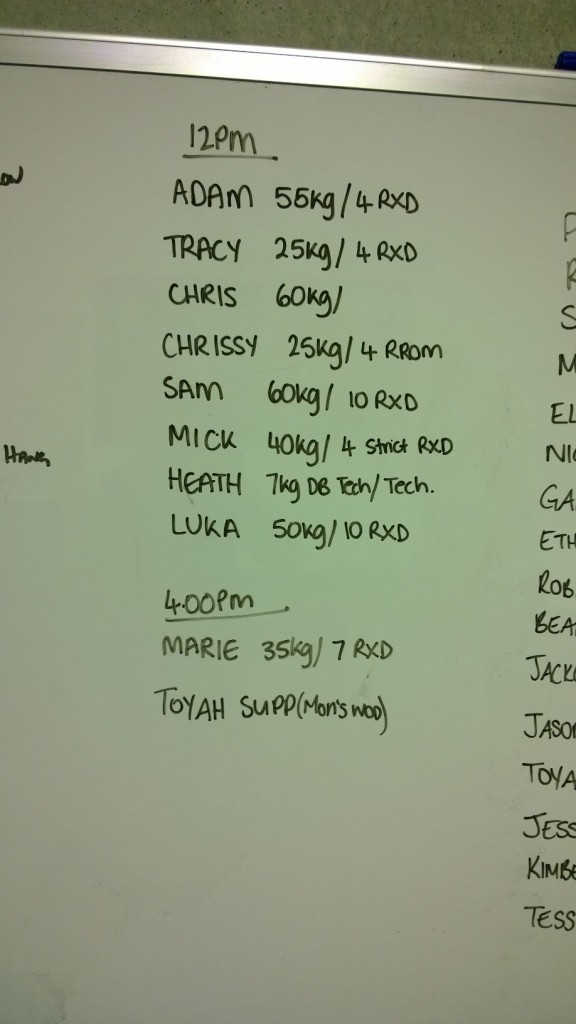 12PM
ADAM 55kg/4 RXD
TRACY 25kg/ 4 RXD
CHRIS 60kg/
CHRISSY 25kg/ 4 RROM
SAM 60kg/ 10 RXD
MICK 40kg/ 4 Strict RXD
HEATH 7kg DB Tech/Tech.
LUKA 50kg/10 RXD
4.00PM
MARIE 35kg/ 7 RXD
TOYAH SUPP(Mon's WOD)
HANG
P
R
S
M
EL
NIC
GA
ETH
ROB
BEA
JACK
JASO
TOYA
JESS
KIMBE
TESS